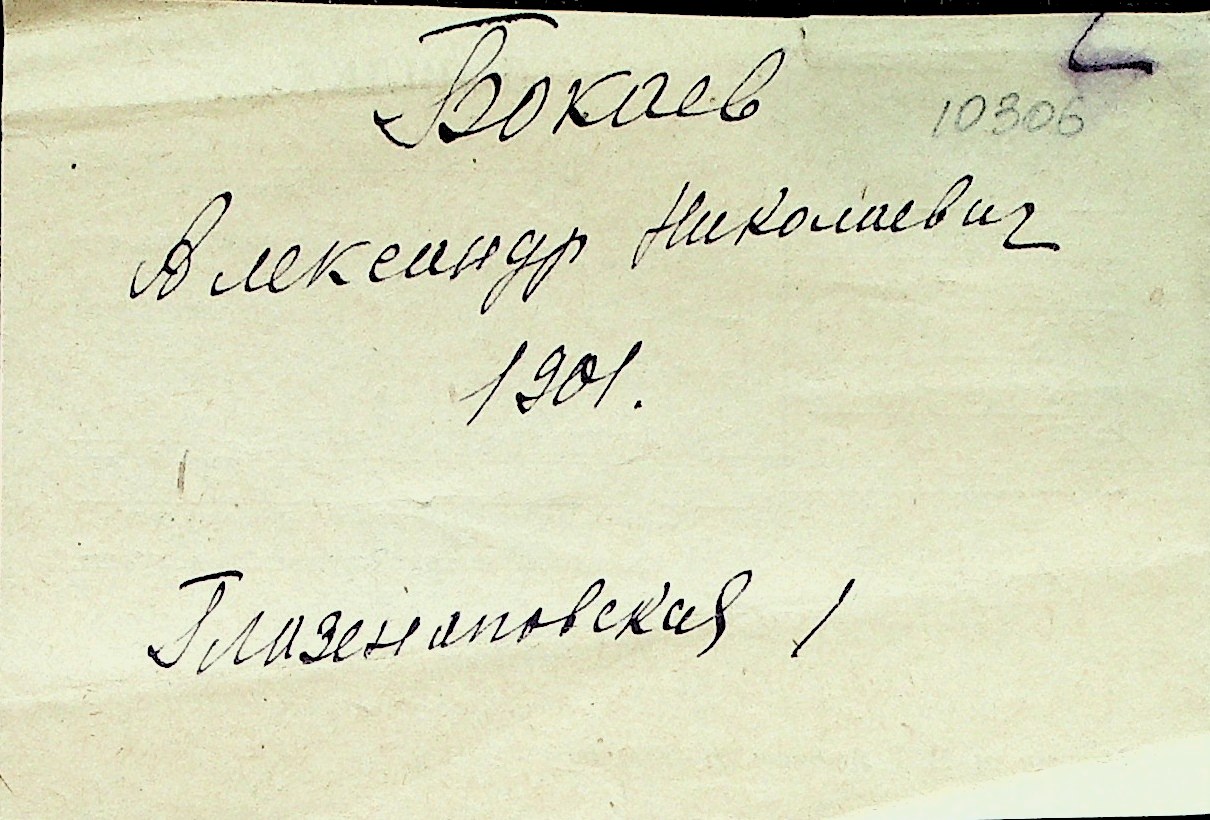 Бокаев
10306
Александр Николаевич
1901.
Глазенаповская 1